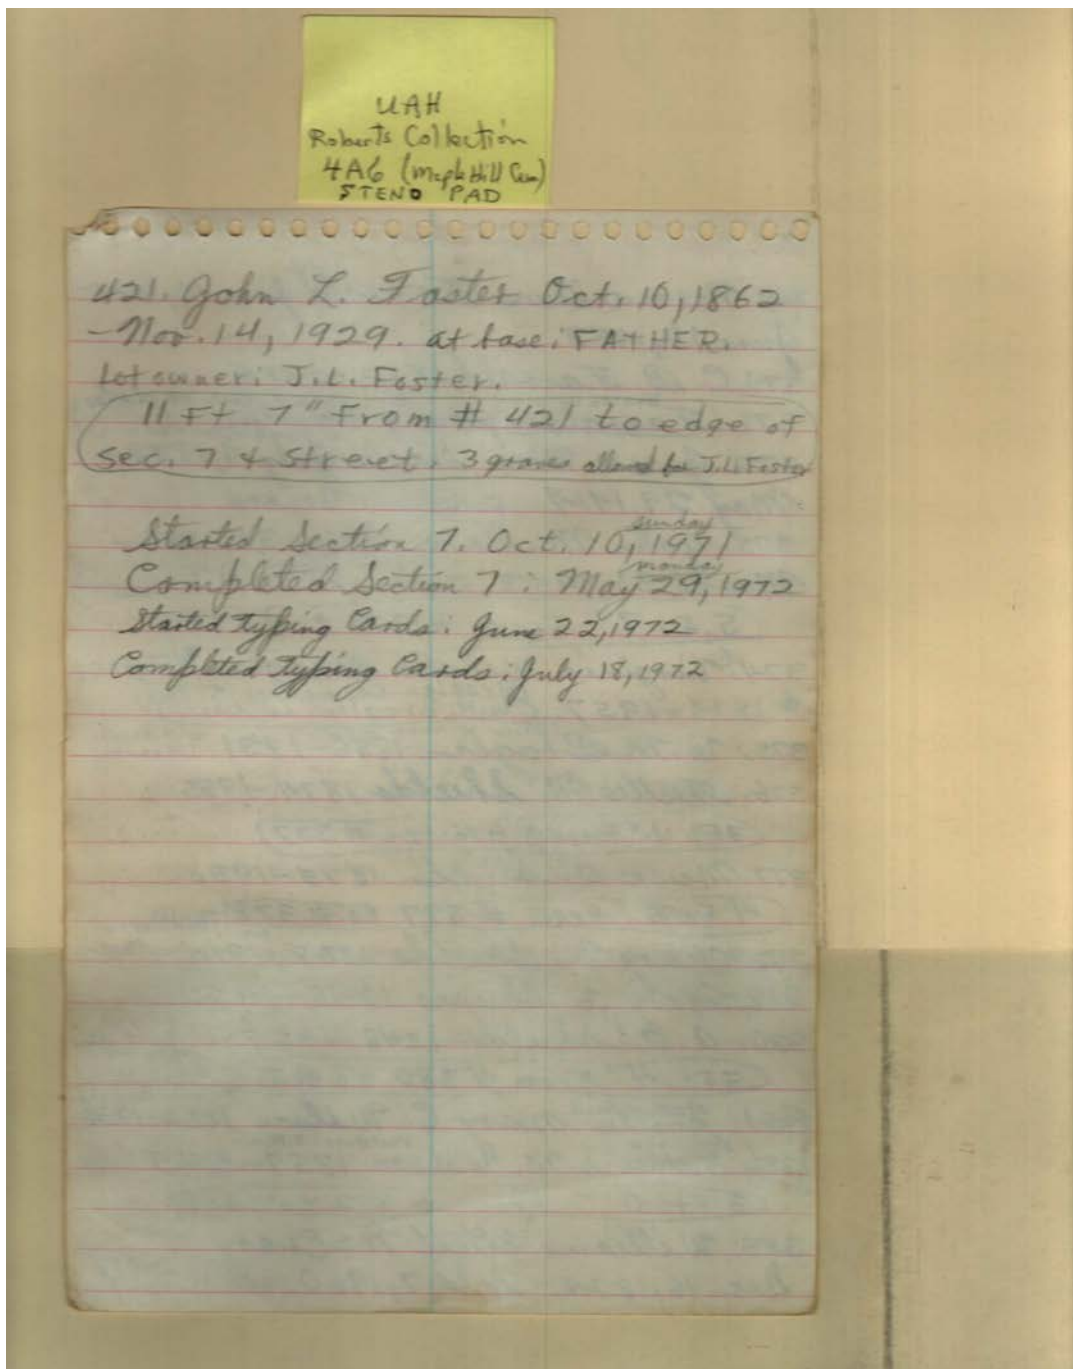 UAH
Roberts Collection
4A6 (Maple Hill Cem)
STENO PAD
421. John L. Foster Oct. 10, 1862
- Nov. 14, 1929. at base: FATHER.
Lot owner: J.L. Foster.
11 Ft 7" From # 421 to edge of
Sec. 7 & Street. 3 graves allowed for J.L. Foster
Sunday
Started Section 7. Oct. 10, 1971
Monday
Completed Section 7 : May 29, 1972
Started typing Cards: June 22, 1972
Completed typing Cards: July 18, 1972